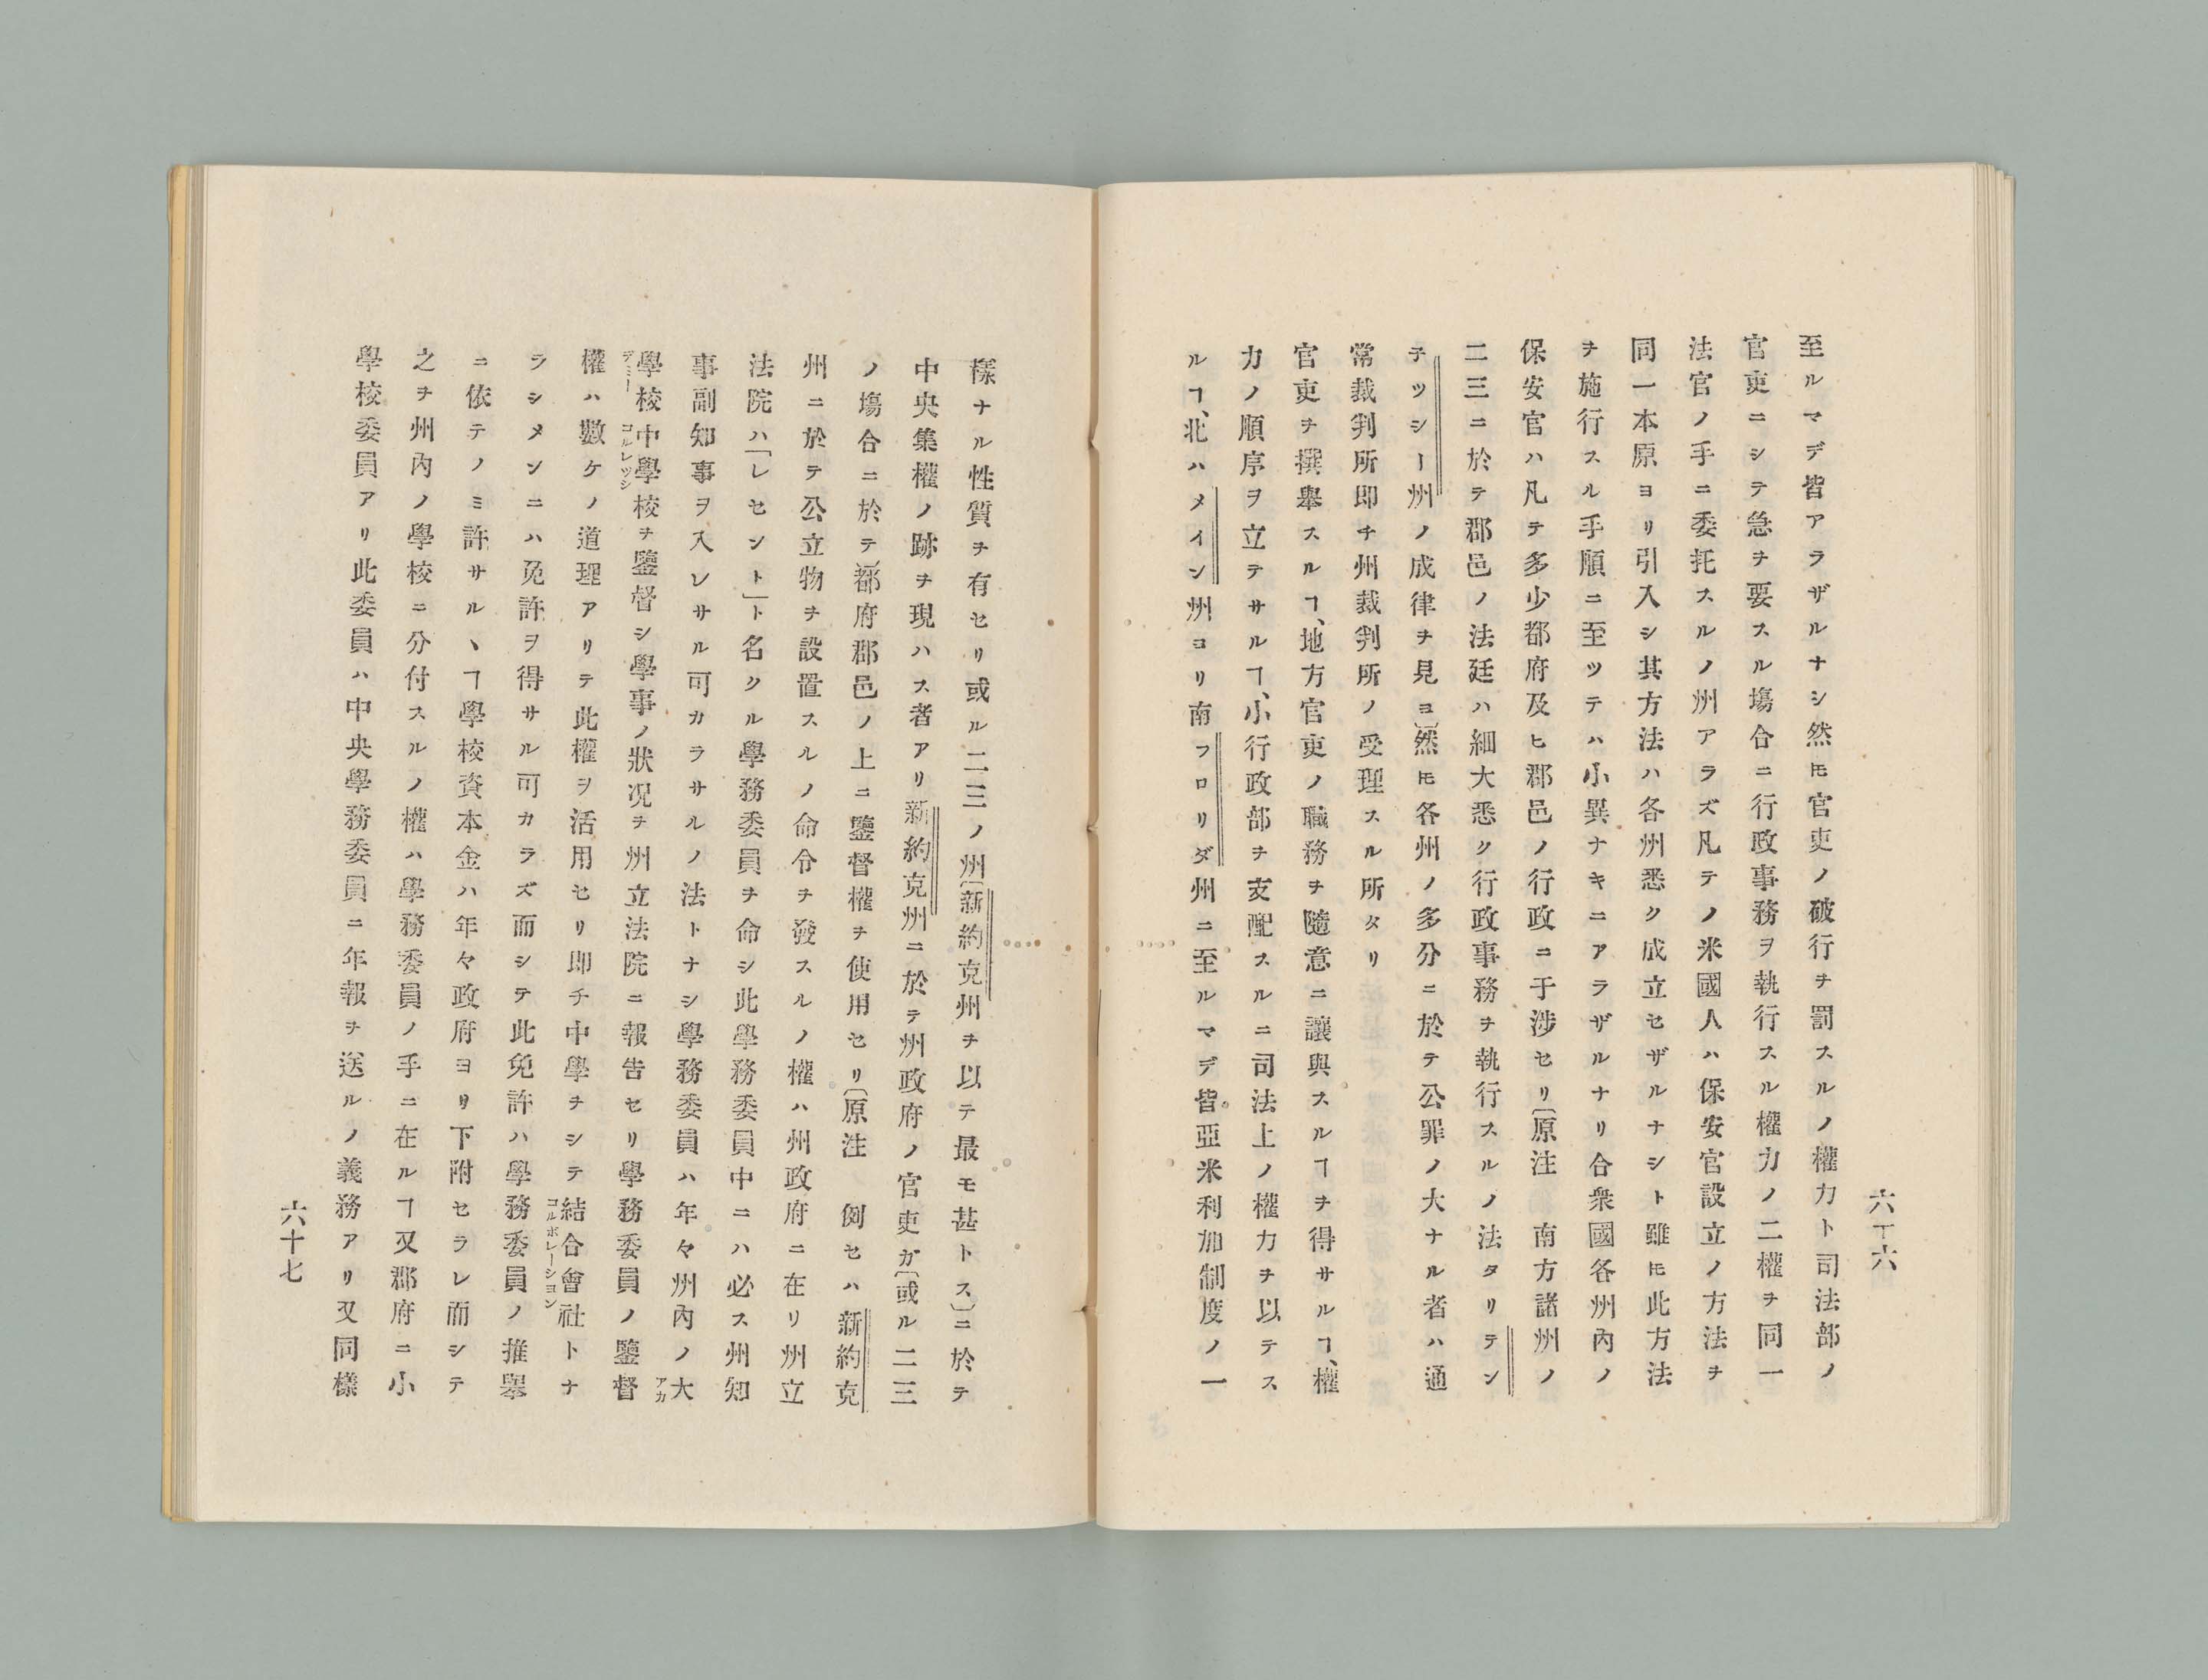 六十六
至ルマデ皆アラザルナシ然𪜈官吏ノ破行ヲ罰スルノ權力ト司法部ノ
官吏ニシテ急ヲ要スル塲合ニ行政事務ヲ執行スル權力ノ二權ヲ同一
法官ノ手ニ委托スルノ州アラズ凡テノ米國人ハ保安官設立ノ方法ヲ
同一本原ヨリ引入シ其方法ハ各州悉ク成立セザルナシト雖𪜈此方法
ヲ施行スル手順ニ至ツテハ小異ナキニアラザルナリ合衆國各州內ノ
保安官ハ凡テ多少都府及ヒ郡邑ノ行政ニ于涉セリ〔原注　南方諸州ノ
二三ニ於テ郡邑ノ法廷ハ細大悉ク行政事務ヲ執行スルノ法タリテン
子ツシー州ノ成律ヲ見ヨ〕然𪜈各州ノ多分ニ於テ公罪ノ大ナル者ハ通
常裁判所即チ州裁判所ノ受理スル所タリ
官吏ヲ撰擧スルヿ、地方官吏ノ職務ヲ隨意ニ讓與スルヿヲ得サルヿ、權
力ノ順序ヲ立テサルヿ、小行政部ヲ支配スルニ司法上ノ權力ヲ以テス
ルヿ、北ハメイン州ヨリ南フロリダ州ニ至ルマデ皆亞米利加制度ノ一
樣ナル性質ヲ有セリ或ル二三ノ州〔新約克州ヲ以テ最モ甚トス〕ニ於テ
中央集權ノ跡ヲ現ハス者アリ新約克州ニ於テ州政府ノ官吏ガ〔或ル二三
ノ塲合ニ於テ〕都府郡邑ノ上ニ鑒督權ヲ使用セリ〔原注　例セハ新約克
州ニ於テ公立物ヲ設置スルノ命令ヲ發スルノ權ハ州政府ニ在リ州立
法院ハ「レセント」ト名クル學務委員ヲ命シ此學務委員中ニハ必ス州知
事副知事ヲ入レサル可カラサルノ法トナシ學務委員ハ年々州內ノ大アカ
學校デミー中學校コルレッジヲ鑒督シ學事ノ狀況ヲ州立法院ニ報告セリ學務委員ノ鑒督
權ハ數ケノ道理アリテ此權ヲ活用セリ即チ中學ヲシテ結合會社コルポレーショントナ
ラシメンニハ免許ヲ得サル可カラズ而シテ此免許ハ學務委員ノ推擧
ニ依テノミ許サルヽヿ學校資本金ハ年々政府ヨリ下附セラレ而シテ
之ヲ州內ノ學校ニ分付スルノ權ハ學務委員ノ手ニ在ルヿ又郡府ニ小
學校委員アリ此委員ハ中央學務委員ニ年報ヲ送ルノ義務アリ又同樣
六十七